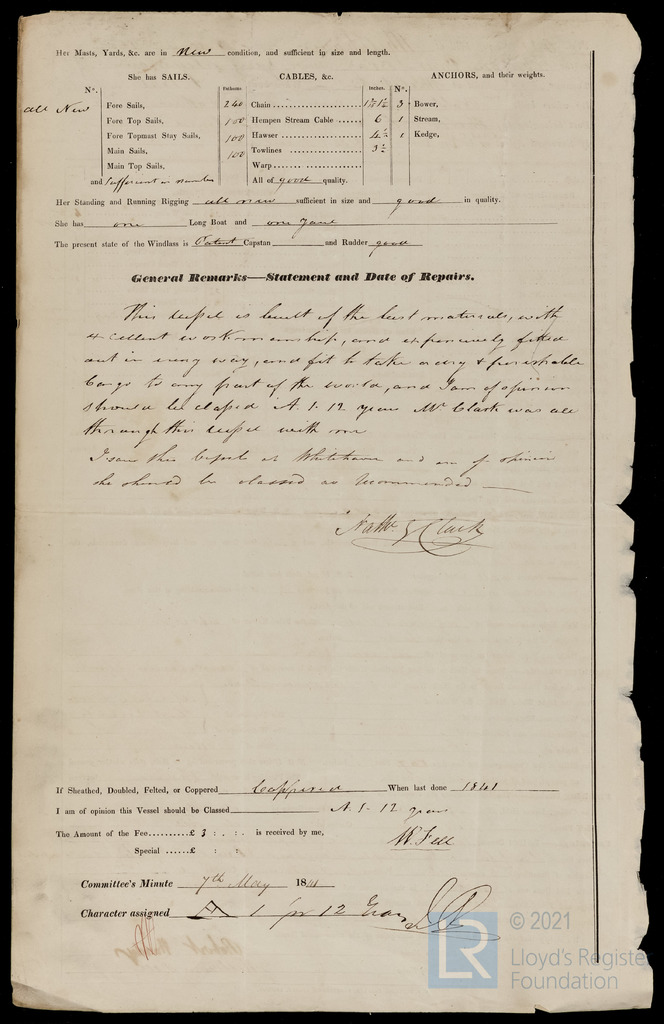 Her Masts, Yards, &c. are in New condition, and sufficient in size and length.
She has SAILS. CABLES, &c. ANCHORS, and their weights.
No. Fathoms. Inches. No.
all New Fore Sails, 240 Chain 1 1/2 3 Bower,
Fore Top Sails, 100 Hempen Stream Cable 6 1 Stream,
Fore Topmast Stay Sails, 100 Hawser 4 1/2 1 Kedge,
Main Sails, 100 Towlines 3 1/2
Main Top Sails, Warp
and sufficient in number All of good quality.
Her Standing and Running Rigging all new sufficient in size and good in quality.
She has one Long Boat and one
The present state of the Windlass is Patent Capstan and Rudder good
General Remarks—Statement and Date of Repairs.
This vessel is built of the best materials, with
excellent workmanship, and expensively fitted
out in every way, and fit to take a dry & perishable
Cargo to any part of the world, and I am of opinion
should be classed A. 1. 12 years Mr Clark was all
through this vessel with me
I saw this Vessel at Whitehaven and am of opinion
she should be classed as recommended
Nathl. G Clark
If Sheathed, Doubled, Felted, or Coppered Coppered When last done 1841
I am of opinion this Vessel should be Classed A. 1. 12 years
The Amount of the Fee £ 3 : . : . is received by me,
Special £ : :
W. Fell
Committee's Minute 7th May 1841
Character assigned A 1 for 12 Years
© 2021
LR
Lloyd's Register
Foundation